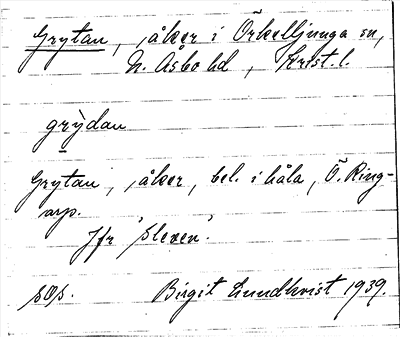 Grytan, åker i Örkelljunga sn,
N. Åsbo hd, Krist. l.
grỳdan
Grytan, åker, bel. i håla, Ö. Ring-
arp.
Jfr 'sleven'.
sOs. Birgit Lundkvist 1939.